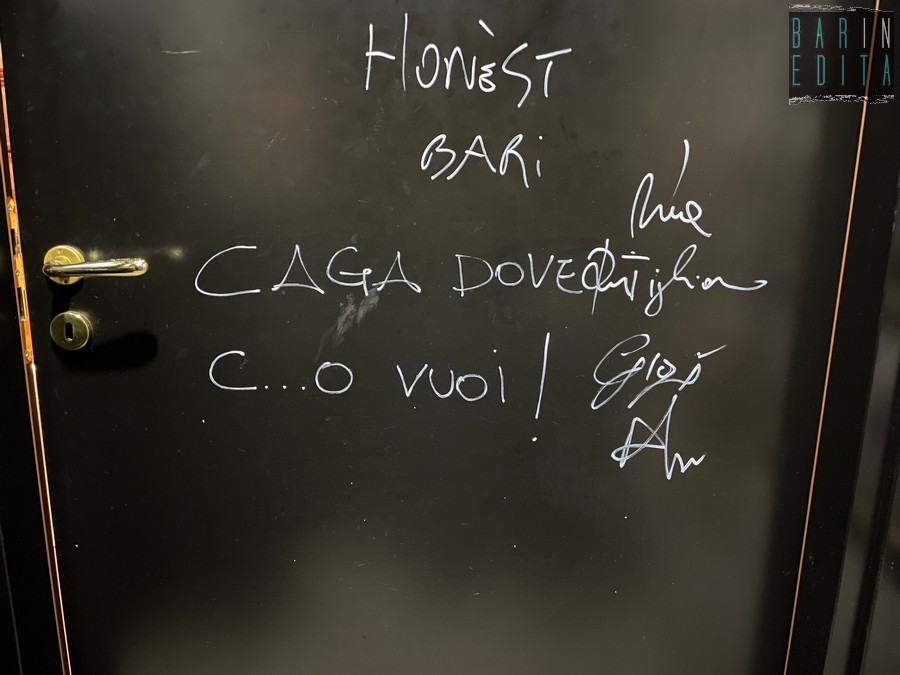 BARIN
EDITA
HONÈST
BARi
CAGA DOVE
C...O VUOi!